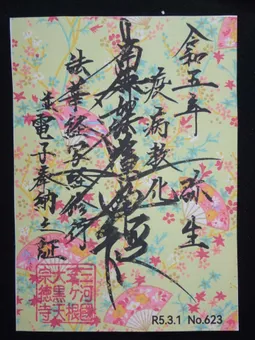 令和五年
弥生
疫病
南無妙法蓮華経
法華経写経修行
並電子奉納之証
三河國
大黒天
宗徳寺
R5.3.1 No.623